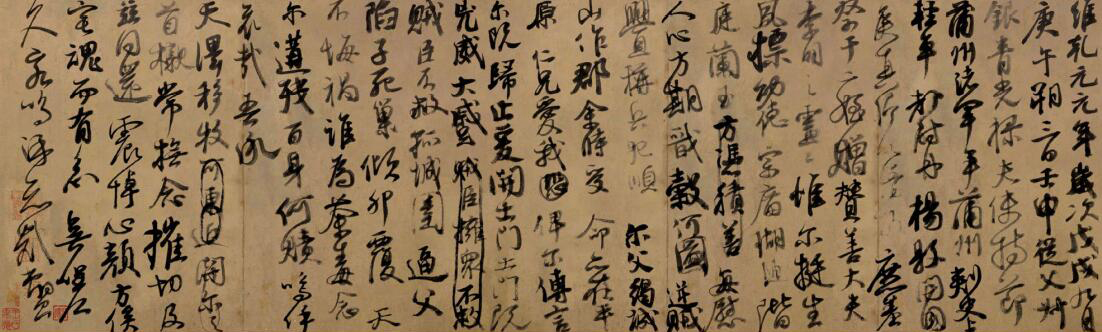 維乾元元年歲次戊戌九月
庚午朔三日壬申從父
銀青光祿夫使持節
蒲州諸軍事蒲州刺史上
輕車都尉丹楊縣開國
侯真卿以清 庶羞
祭于亡姪贈贊善大夫
季明之靈惟爾挺生
夙標幼德宗廟瑚璉階
庭蘭玉方憑積善每慰
人心方期戩穀何圖逆賊
閒釁稱兵犯順爾父竭誠
山作郡余時受命亦在平
原仁兄愛我俾爾傳言
爾既歸止爰開土門土門既
兇威大蹙賊臣擁眾不救
賊臣不救孤城圍逼父
陷子死巢傾卵覆天
不悔禍誰為荼毒念
爾遘殘百身何贖嗚呼
哀哉吾承
天澤移牧河東近河關爾之
首櫬常撫念摧切及
茲同還震悼心顏方俟
宅魂而有知無嗟
久客嗚呼哀哉尚饗